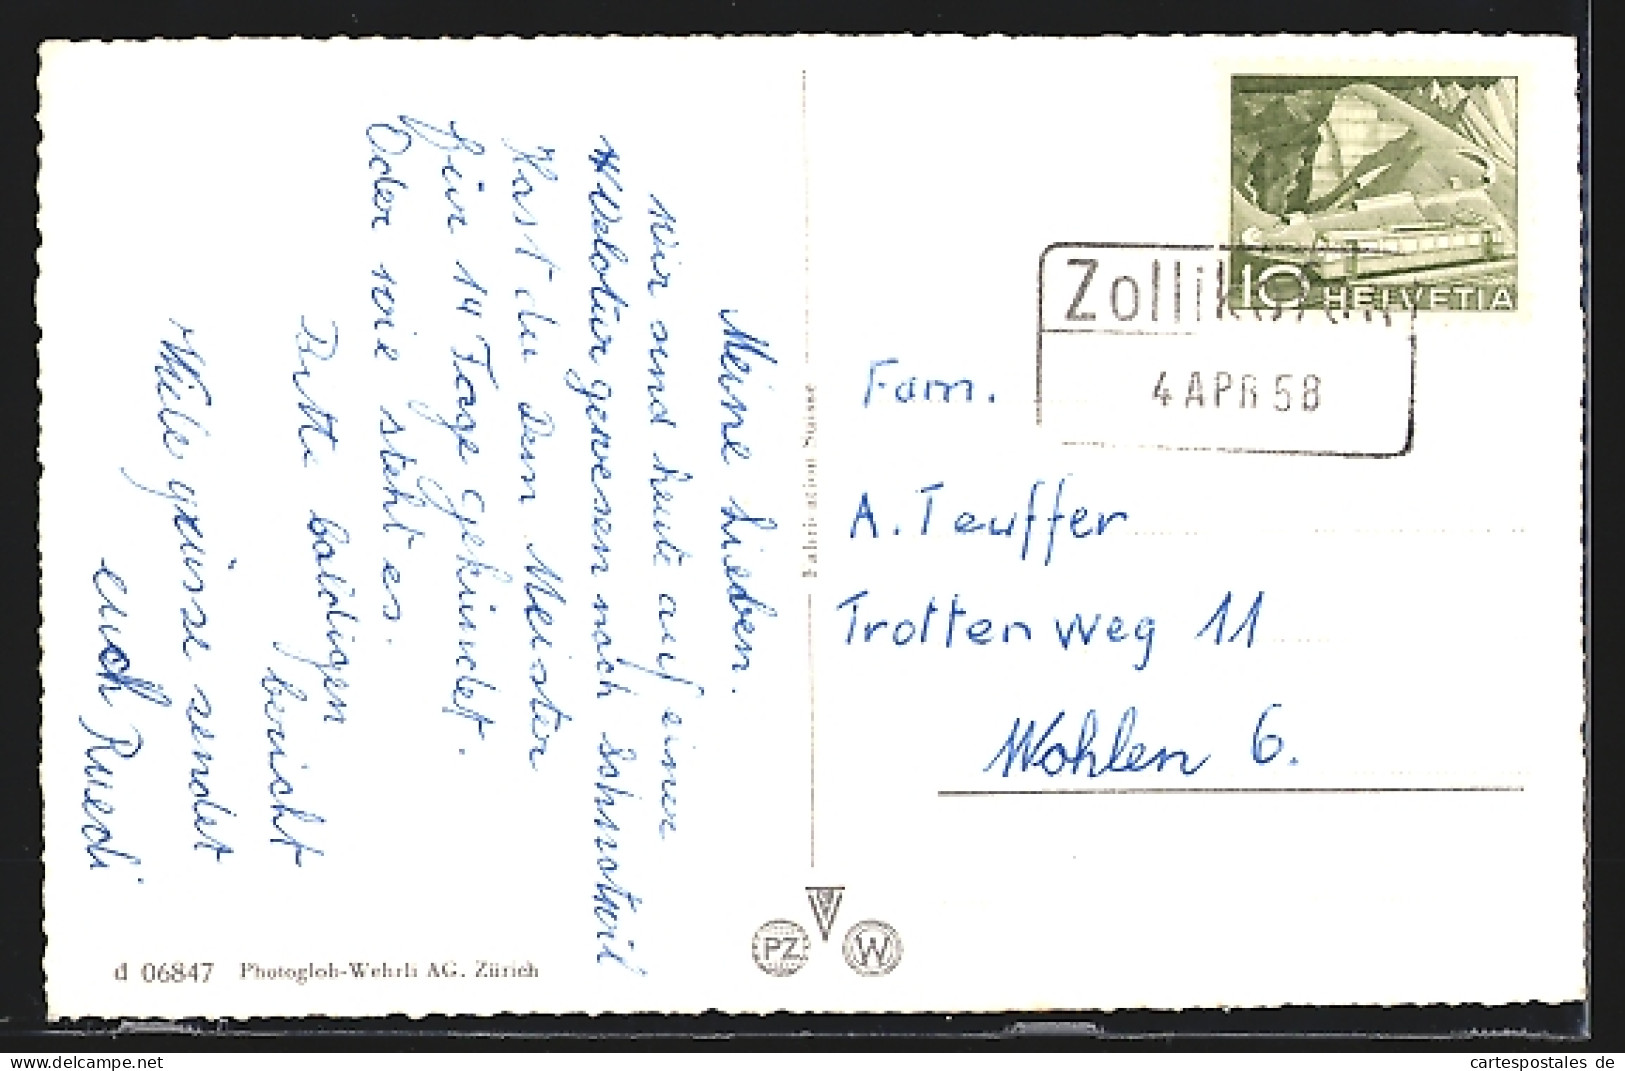 Meine Lieben.
Wir sind heute auf einer
Velotur gewesen nach Schnotwil
Hast du dem Meister
für 14 Tage gekündet.
Oder wie steht es.
Bitte baldigen
bericht
Viele grüsse sendet
euch Ruedi
d 06847 Photoglob-Wehrli AG. Zürich
Fabrication Suisse
PZ
W
10 HELVETIA
Zollikofen
4 APR 58
Fam.
A. Teuffer
Trottenweg 11
Wohlen 6.
cartespostales de